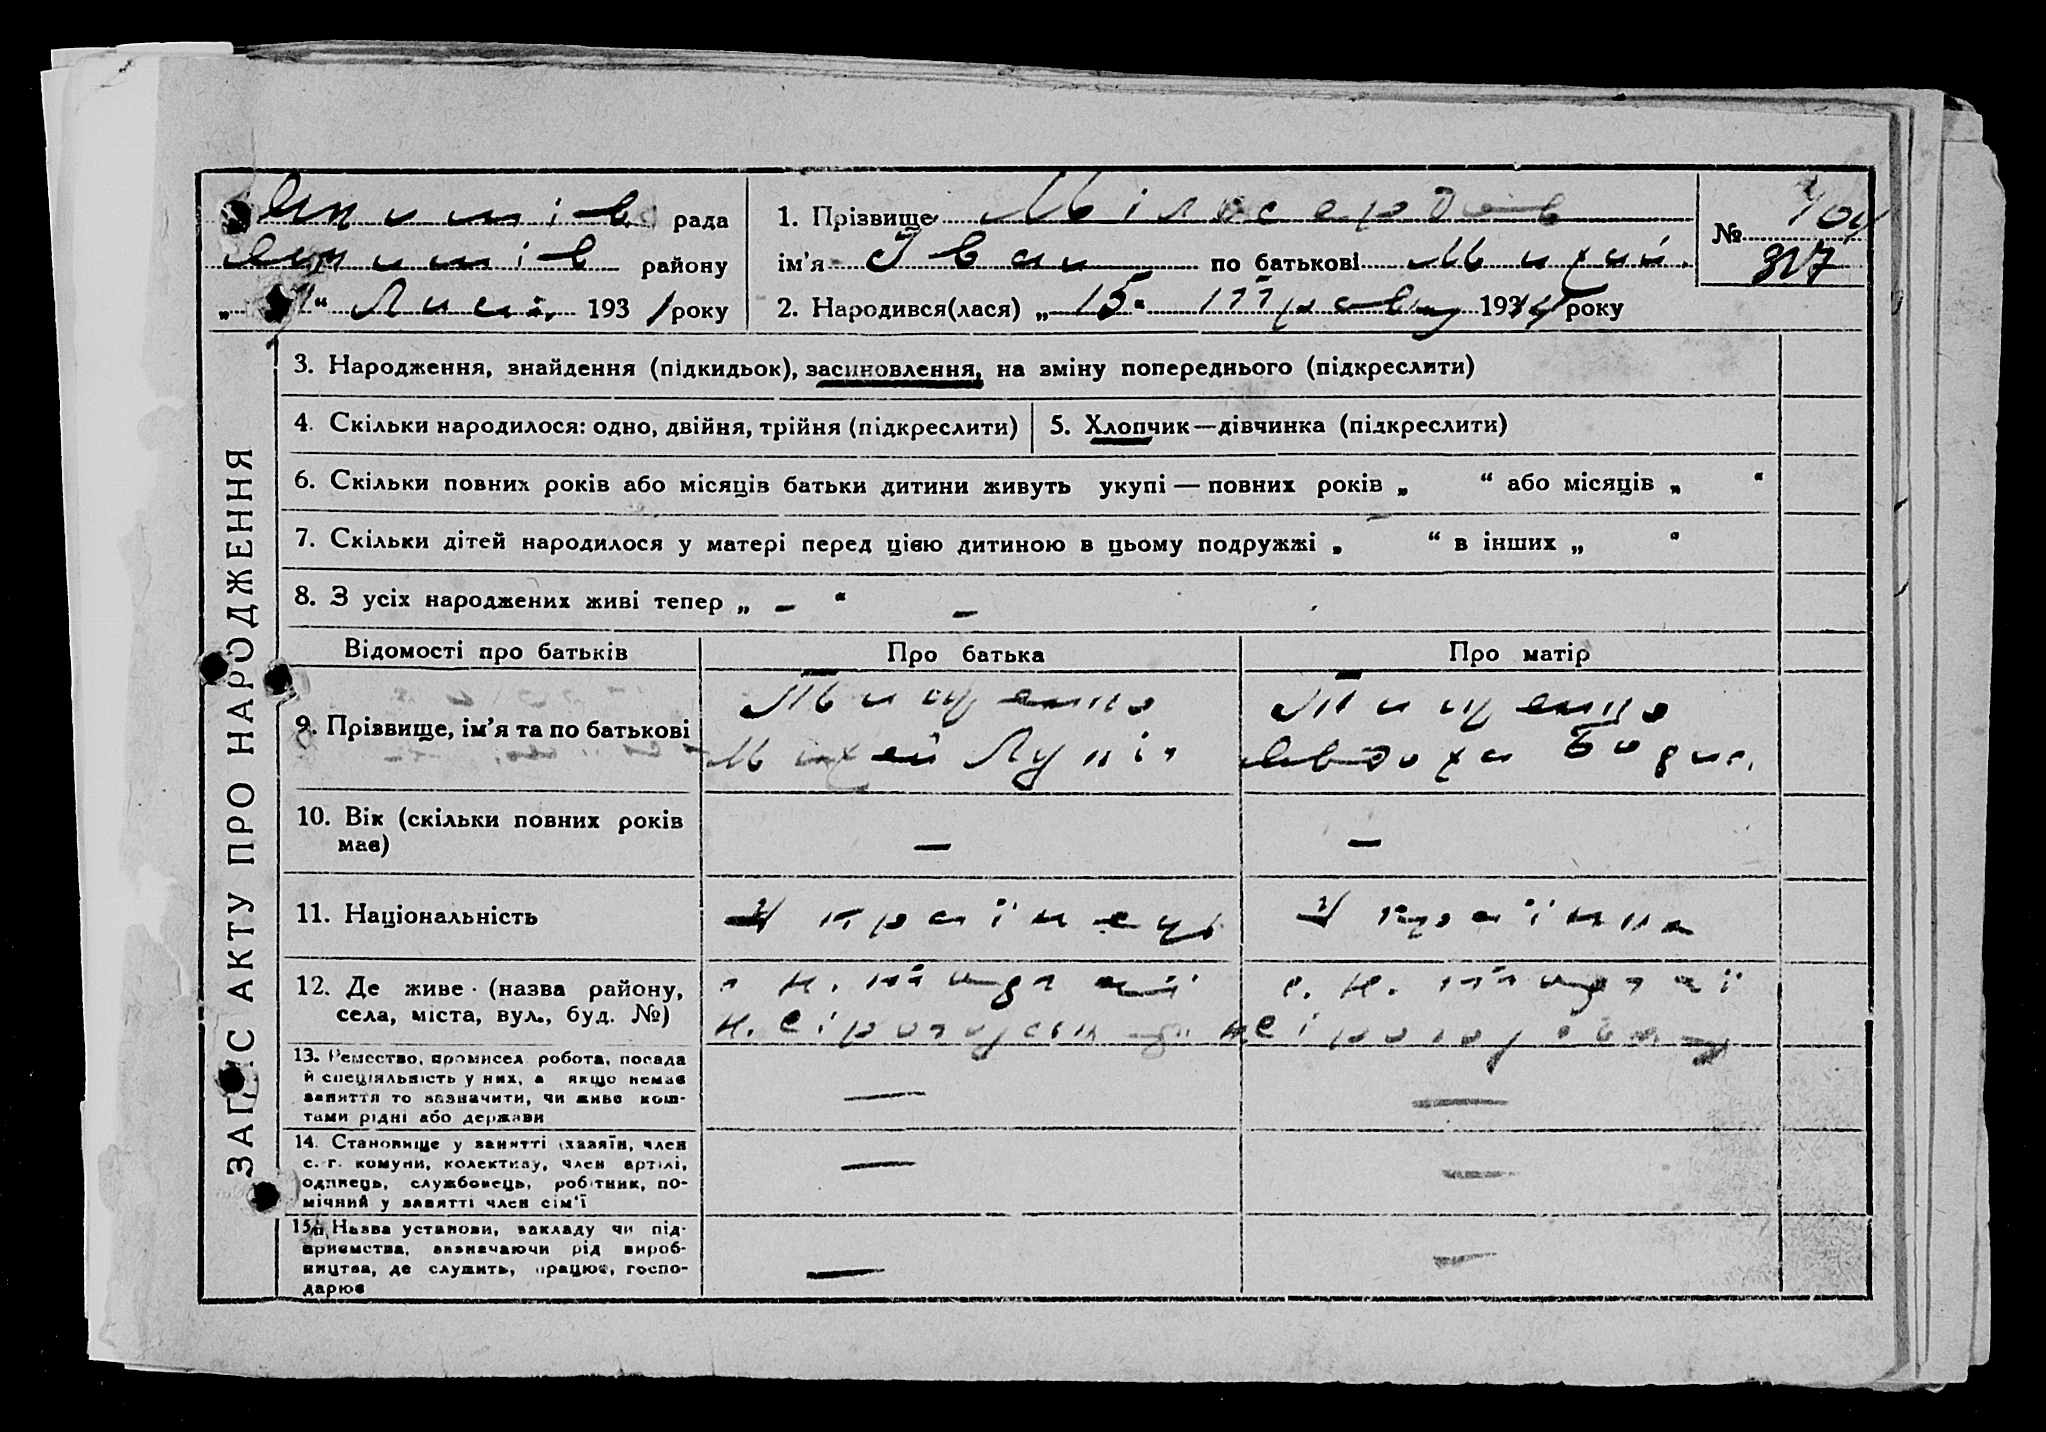 рада
району
193 1 року
1. Прізвище Мілосердов
ім'я Іван по батькові Михай.
2. Народився(лася) „ 15 “ 193 року
№
317
ЗАПИС АКТУ ПРО НАРОДЖЕННЯ
3. Народження, знайдення (підкидьок), засиновлення, на зміну попереднього (підкреслити)
4. Скільки народилося: одно, двійня, трійня (підкреслити)
5. Хлопчик—дівчинка (підкреслити)
6. Скільки повних років або місяців батьки дитини живуть укупі — повних років „ “ або місяців „ “
7. Скільки дітей народилося у матері перед цією дитиною в цьому подружжі „ “ в інших „ “
8. З усіх народжених живі тепер „ – “ –
Відомості про батьків Про батька Про матір
9. Прізвище, ім'я та по батькові
Тищенко
Михей Лукія
Тищенко
Евдоха
10. Вік (скільки повних років
має)
–
–
11. Національність
Українець
Українка
12. Де живе (назва району,
села, міста, вул., буд. №)
13. Ремество, промисел, робота, посада
й спеціяльність у них, а якщо немає
заняття то зазначити, чи живе кош-
тами рідні або держави
—
—
14. Становище у занятті (хазяїн, член
с.-г. комуни, колективу, член артілі,
одинець, службовець, робітник, по-
мічний у занятті член сім'ї
—
—
15. Назва установи, закладу чи під-
приємства, визначаючи рід вироб-
ництва, де служить, працює, госпо-
дарює
—
—